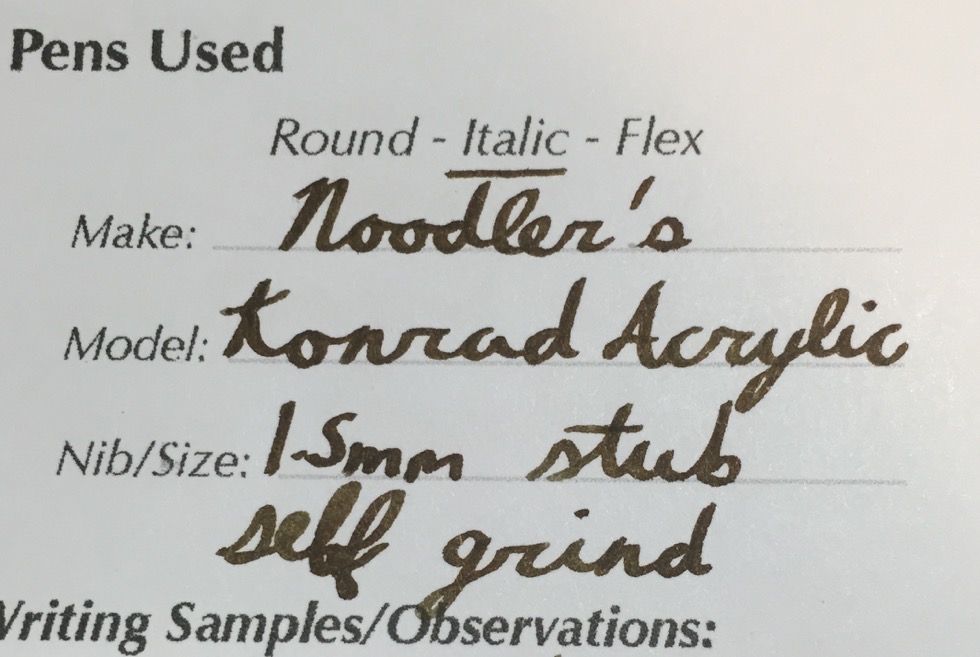 Pens Used
Round - Italic - Flex
Make: Noodler's
Model: Konrad Acrylic
Nib/Size: 1.5mm stub
self grind
Writing Samples/Observations: